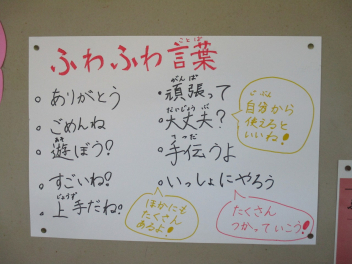 ふわふわ言葉
ありがとう
ごめんね
遊ぼう?
すごいね!
上手だね!
頑張って
大丈夫?
手伝うよ
いっしょにやろう
自分から
使えると
いいね!
ほかにも
たくさん
あるよ!
たくさん
つかっていこう!